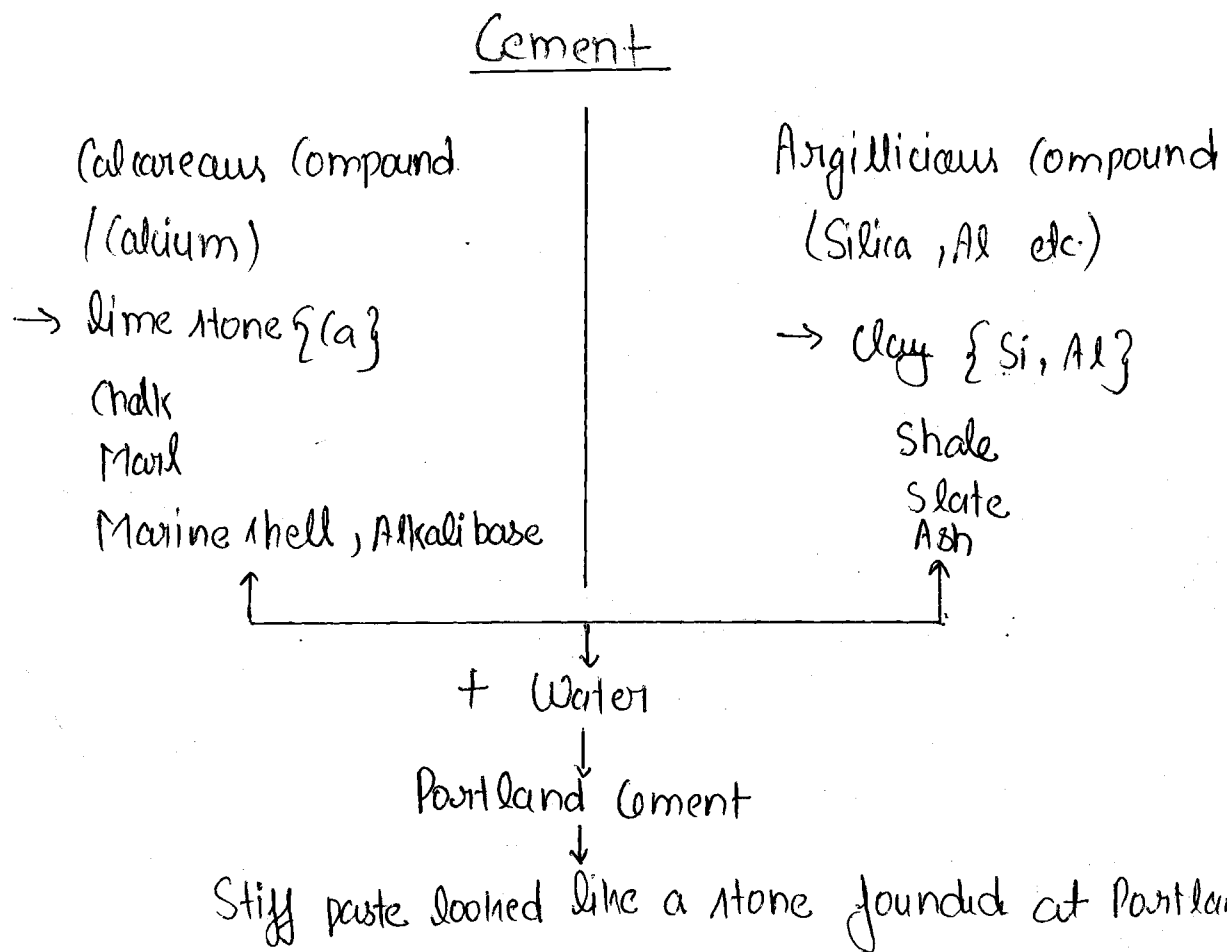 Cement
Calcareous Compound
(Calcium)
→ lime stone {Ca}
Chalk
Marl
Marine shell, Alkali base
Argillicious compound
(Silica, Al etc.)
→ Clay {Si, Al}
Shale
Slate
Ash
+ Water
Portland Cement
Stiff paste looked like a stone founded at Portla